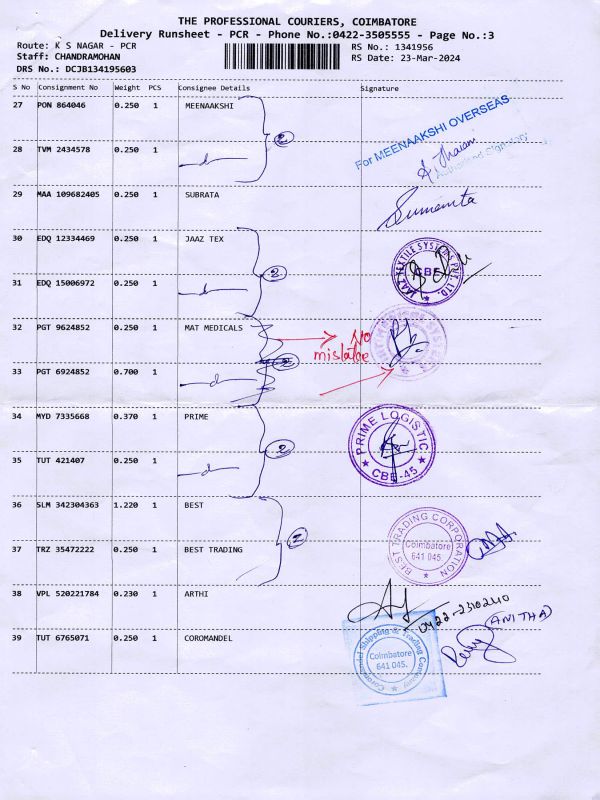 THE PROFESSIONAL COURIERS, COIMBATORE
Delivery Runsheet - PCR - Phone No.:0422-3505555 - Page No.:3
Route: K S NAGAR - PCR RS No.: 1341956
Staff: CHANDRAMOHAN RS Date: 23-Mar-2024
DRS No.: DCJB134195603
S No Consignment No Weight PCS Consignee Details Signature
27 PON 864046 0.250 1 MEENAAKSHI 2
For MEENAAKSHI OVERSEAS
Authorised Signatory
28 TVM 2434578 0.250 1
29 MAA 109682405 0.250 1 SUBRATA
30 EDQ 12334469 0.250 1 JAAZ TEX
JAAZ TEXTILE SYSTEMS PVT. LTD. CBE
31 EDQ 15006972 0.250 1 2
32 PGT 9624852 0.250 1 MAT MEDICALS
No
mistake
33 PGT 6924852 0.700 1 2
34 MYD 7335668 0.370 1 PRIME 2
PRIME LOGISTIC
CBE-45
35 TUT 421407 0.250 1
36 SLM 342304363 1.220 1 BEST 2
BEST TRADING CORPORATION
Coimbatore
641 045.
37 TRZ 35472222 0.250 1 BEST TRADING
38 VPL 520221784 0.230 1 ARTHI
0422-2310240
(ANITHA)
39 TUT 6765071 0.250 1 COROMANDEL
Coromandel Shipping & Trading Company
Coimbatore
641 045.